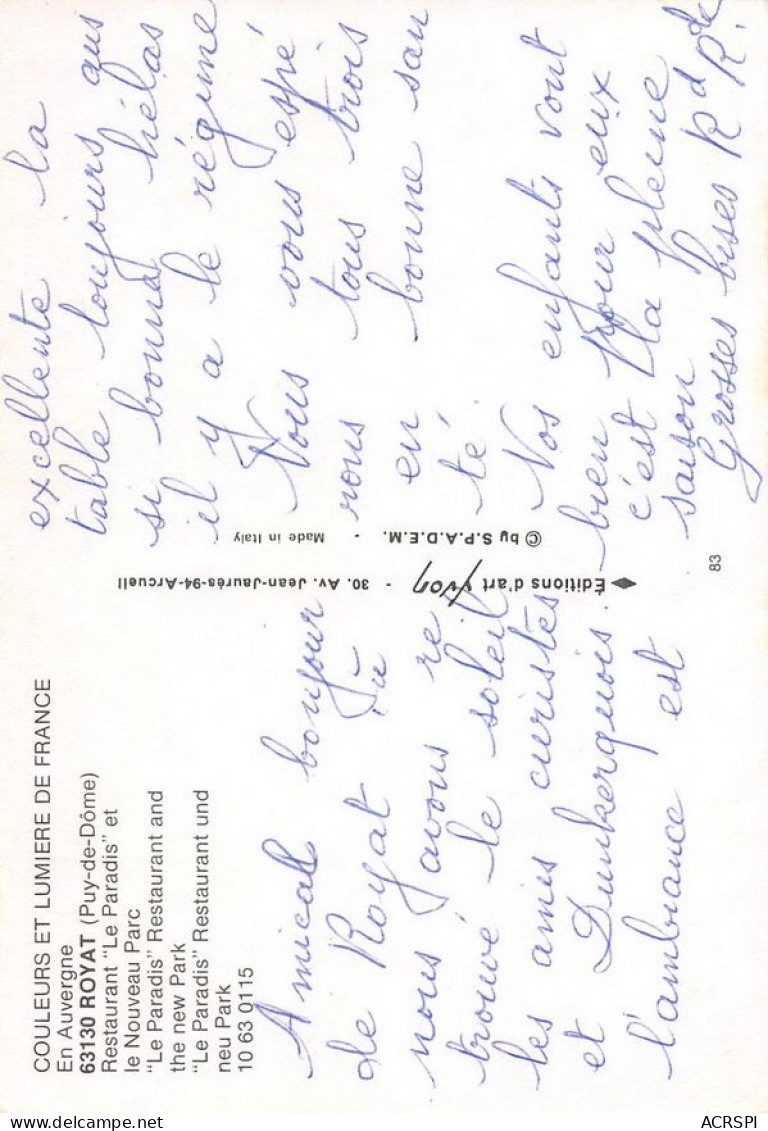 COULEURS ET LUMIERE DE FRANCE
En Auvergne
63130 ROYAT (Puy-de-Dôme)
Restaurant "Le Paradis" et
le Nouveau Parc
"Le Paradis" Restaurant and
the new Park
"Le Paradis" Restaurant und
neu Park
10 63 0115
Amical bonjour
de Royat
nous avons re
trouvé le soleil
les amis curistes
et Dunkerquois
l'ambiance est
Éditions d'art Yvon - 30. Av. Jean-Jaurès-94-Arcueil
© by S.P.A.D.E.M. - Made in Italy
excellente la
table toujours aus
si bonne hélas
il y a le régime
Nous vous espé
rons tous trois
en bonne san
té.
Nos enfants vont
bien pour eux
c'est la pleine
saison
Grosses bises
83
ACRSPI